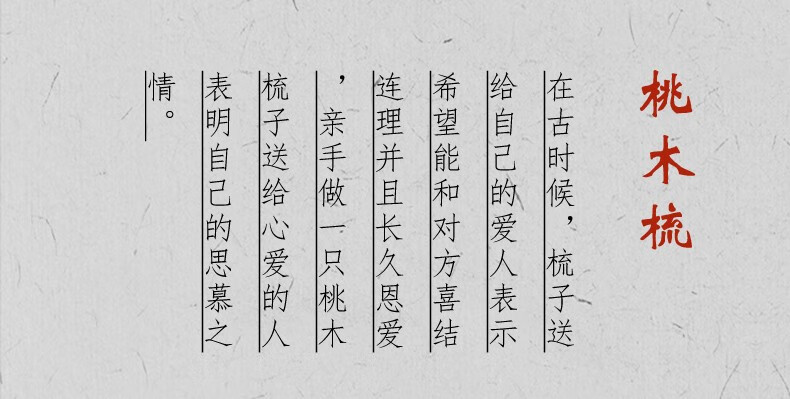 桃木梳
在古时候，梳子送
给自己的爱人表示
希望能和对方喜结
连理并且长久恩爱
，亲手做一只桃木
梳子送给心爱的人
表明自己的思慕之
情。